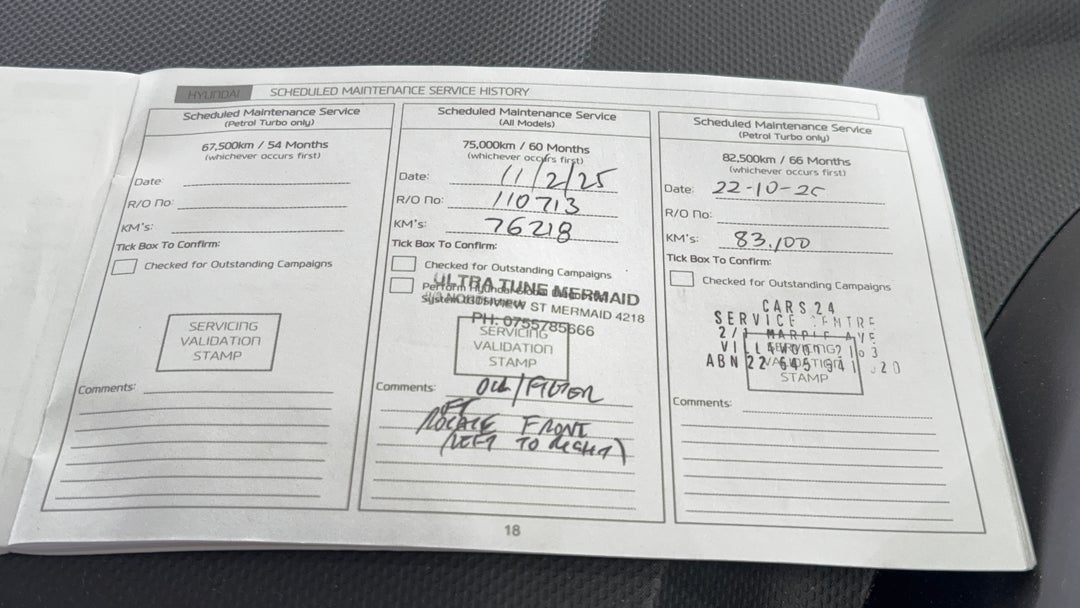 HYUNDAI SCHEDULED MAINTENANCE SERVICE HISTORY
Scheduled Maintenance Service
(Petrol Turbo only)
67,500km / 54 Months
(whichever occurs first)
Date:
R/O No:
KM's:
Tick Box To Confirm:
Checked for Outstanding Campaigns
SERVICING
VALIDATION
STAMP
Comments:
Scheduled Maintenance Service
(All Models)
75,000km / 60 Months
(whichever occurs first)
Date: 11/2/25
R/O No: 110713
KM's: 76218
Tick Box To Confirm:
Checked for Outstanding Campaigns
Perform Hyundai
System
ULTRA TUNE MERMAID
ST MERMAID 4218
PH: 0755785666
SERVICING
VALIDATION
STAMP
Comments: OIL/FILTER
ROTATE FRONT
(LEFT TO RIGHT)
Scheduled Maintenance Service
(Petrol Turbo only)
82,500km / 66 Months
(whichever occurs first)
Date: 22-10-25
R/O No:
KM's: 83,100
Tick Box To Confirm:
Checked for Outstanding Campaigns
CARS24
SERVICE CENTRE
2/1 AVE
ABN 22 645
STAMP
Comments:
18